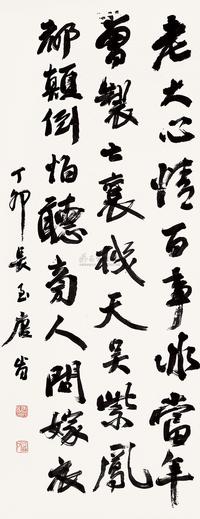 老大心情百事非當年
曾製七襄機天吳紫鳳
都顛倒怕聽旁人問嫁衣
丁卯長至